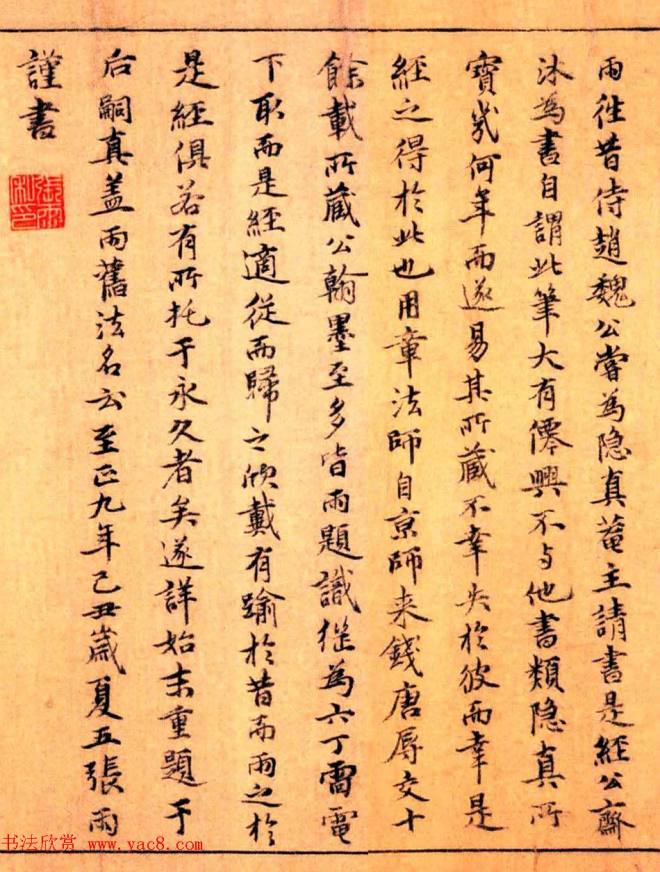 雨往昔侍趙魏公嘗為隐真菴主請書是經公齋
沐為書自謂此筆大有僊興不与他書類隐真所
寶炁何年而遂易其所蔵不幸失於彼而幸是
經之得於此也用章法師自京師来錢唐辱交十
餘載所蔵公翰墨至多皆雨題識継為六丁雷電
下取而是經適從而歸之欣戴有踰於昔而雨之於
是經俱若有所托于永久者矣遂詳始末重題于
后嗣真盖雨舊法名云至正九年己丑歲夏五張雨
謹書
张雨私印
书法欣赏 www.yac8.com